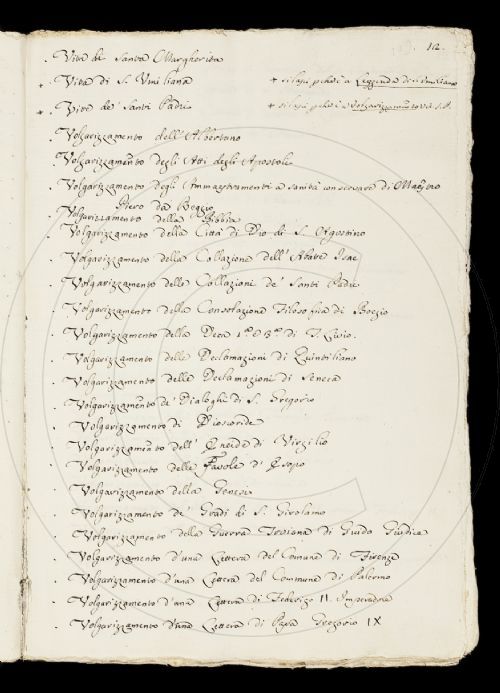 112.
. Vita di Santa Margherita
+ . Vita di S. Umiliana + si lasci perchè è Leggenda di S. Umiliana
+ . Vite de' Santi Padri + si lasci perchè è Volgarizzamento Vit. S. P.
. Volgarizzamento dell' Albertano
. Volgarizzamento degli Atti degli Apostoli
. Volgarizzamento degli Ammaestramenti a sanità conservare di Maestro
Piero da Reggio
. Volgarizzamento della Bibbia
. Volgarizzamento della Città di Dio di S. Agostino
. Volgarizzamento della Collazione dell' Abate Isac
. Volgarizzamento delle Collazioni de' Santi Padri
. Volgarizzamento della Consolazione Filosofica di Boezio
. Volgarizzamento della Deca 1.ª e 3.ª di T. Livio.
. Volgarizzamento delle Declamazioni di Quintiliano
. Volgarizzamento delle Declamazioni di Seneca
. Volgarizzamento de' Dialoghi di S. Gregorio
. Volgarizzamento di Dioscoride
. Volgarizzamento dell' Eneide di Virgilio
. Volgarizzamento delle Favole d' Esopo
. Volgarizzamento della Genesi
. Volgarizzamento de' Gradi di S. Girolamo
. Volgarizzamento della Guerra Troiana di Guido Giudice
. Volgarizzamento d'una Lettera del Comune di Firenze
. Volgarizzamento d'una Lettera del Comune di Palermo
. Volgarizzamento d'una Lettera di Federigo II. Imperadore
. Volgarizzamento d'una Lettera di Papa Gregorio IX